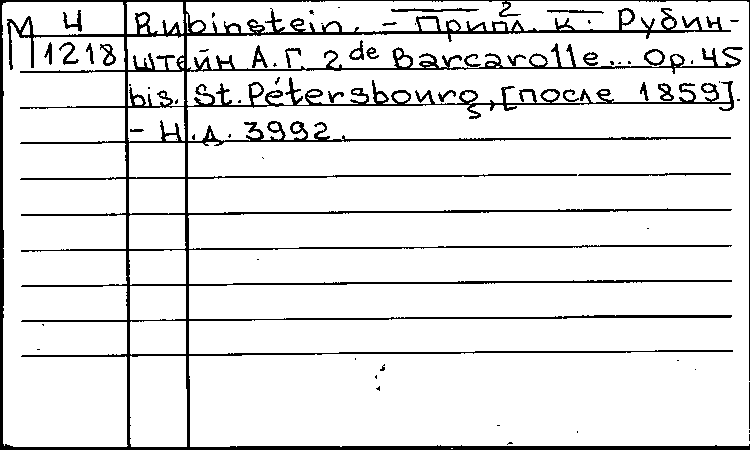 М 4 Rubinstein. – Припл. к: Рубин-
1218 штейн А.Г. 2de Barcarolle... Op.45
bis. St.Pétersbourg, [после 1859].
– Н.д. 3992.